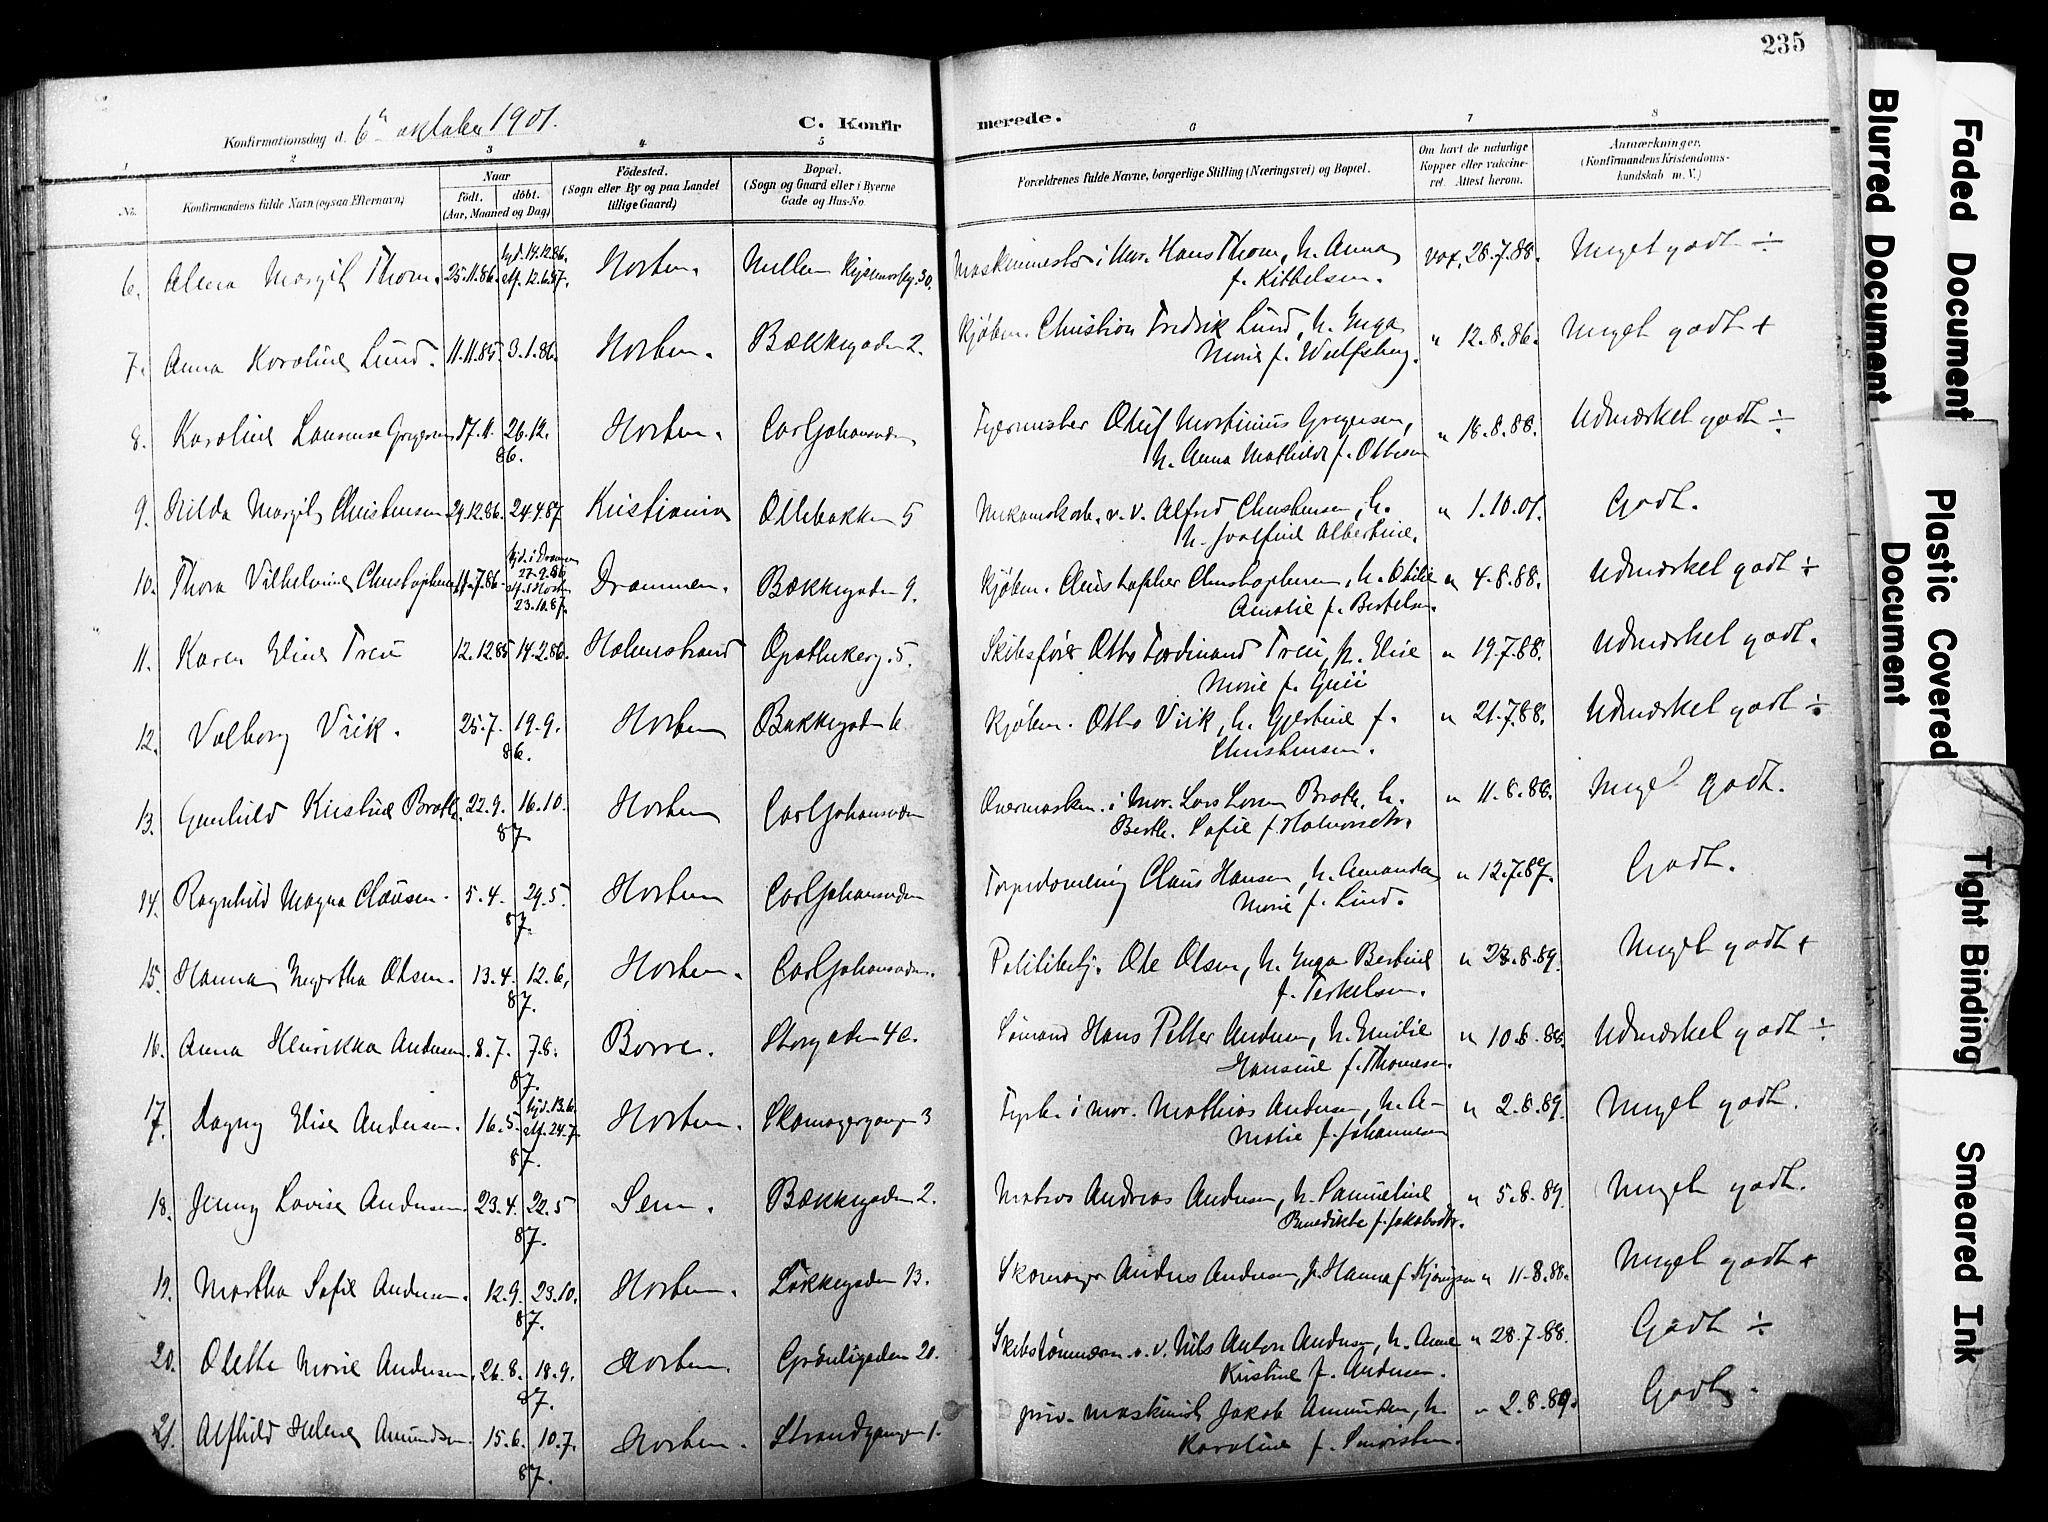 235
Konfirmationsdag d. 6te oktober 1901.
C. Konfirmerede.
1 2 3 4 5 6 7 8
No.
Konfirmandens fulde Navn (ogsaa Efternavn)
Naar
født. døbt.
(Aar, Maaned og Dag)
Fødested.
(Sogn eller By og paa Landet
tillige Gaard)
Bopæl.
(Sogn og Gaard eller i Byerne
Gade og Hus-No.
Forældrenes fulde Navne, borgerlige Stilling (Næringsvei) og Bopæl.
Om havt de naturlige
Kopper eller vaccine-
ret. Attest herom.
Anmærkninger.
(Konfirmandens Kristendoms-
kundskab m. V.)
6. Alma Margit Thom. 25.11.86. hjd. 14.12.86. Horten. Mellem 30. Maskinmester i Mar. Hans Thom, h. Anna vax. 28.7.88. Meget godt ÷
stf. 12.6.87.
f. Kittelsen.
7. Anna Karoline Lund. 11.11.85. 3.1.86. Horten. Bækkegaden 2. Kjøbm. Christian Fredrik Lund, h. Inga " 12.8.86. Meget godt +
Marie f. Wulfsberg.
8. Karoline Laurense Gregersen 17.11. 26.12. Horten. Carljohansværn Oluf Martinius Gregersen, " 18.8.88. Udmærket godt ÷
86.
h. Anna Mathilde f. Ottesen
9. Hilda Margit Christensen 29.12.86. 24.4.87 Kristiania Ollebakken 5 v. V. Alfred Christensen, h. " 1.10.01. Godt.
h. Josefine Albertine.
10. Thora Vilhelmine Christophersen 11.7.86. hjd. i Drammen Drammen. Bækkegaden 9. Kjøbm. Christopher Christophersen, h. Otilie " 4.8.88. Udmærket godt ÷
27.9.86
stf. i Horten
23.10.87.
Amalie f. Bertelsen.
11. Karen Eline Treu 12.12.85 14.2.86. Holmestrand Apothekerg. 5. Skibsfører Otto Ferdinand Treu, h. Elise " 19.7.88. Udmærket godt.
Marie f.
12. Valborg Viik. 25.7. 19.9. Horten Bakkegaden 6 Kjøbm. Otto Viik, h. Gjertine f. " 21.7.88. Udmærket godt ÷
86.
Christensen.
13. Gunhild Kristine Brath. 22.9. 16.10. Horten Carljohansværn i Mar. Lars Brath, h. " 11.8.88. Meget godt.
87
Berth. Sofie f. Halvorsdtr.
14. Ragnhild Magna Clausen. 5.4. 29.5. Horten Carljohansværn Claus Hansen, h. Amanda " 12.7.87. Godt.
87.
Marie f. Lind.
15. Hanna Myrtha Olsen. 13.4. 12.6. Horten. Carljohansværn. Politibetj. Ole Olsen, h. Inga Bertine " 23.8.89. Meget godt +
87.
f. Terkelsen.
16. Anna Henrikka Andersen. 8.7. 7.8. Borre. Storgaden 4c. Sømand Hans Petter Andersen, h. Emilie " 10.8.88. Udmærket godt ÷
87.
Hansine f. Thomesen.
17. Dagny Elise Andersen. 16.5. hjd. 13.6. Horten. Skomagergangen 3 i Mar. Mathias Andersen, h. A- " 2.8.89. Meget godt.
stf. 24.7.
87.
malie f. Johannesen
18. Jenny Lovise Andersen. 23.4. 22.5 Sem. Bækkegaden 2. Matros Andreas Andersen, h. Samueline " 5.8.89. Meget godt.
87.
Benedikte f. Jakobsdtr.
19. Martha Sofie Andersen. 12.9. 23.10. Horten. Løkkegaden 13. Skomager Anders Andersen, h. Hanna f. " 11.8.88. Meget godt +
87.
20. Olette Marie Andersen. 26.8. 18.9. Horten. Grønligaden 20. Skibstømmerm. v. V. Nils Anton Andersen, h. Anne " 28.7.88. Godt ÷
87.
Kristine f. Andersen.
21. Alfhild Helene Amundsen. 15.6. 10.7. Horten. Strandgangen 1. priv. maskinist Jakob Amundsen, h. " 2.8.89. Godt.
87.
Karoline f.
Blurred Document
Faded Document
Plastic Covered
Document
Tight Binding
Smeared Ink